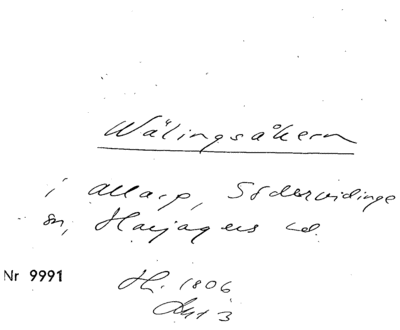 Wälingsåkern
i Allarp, Södervidinge
sn, Harjagers hd.
Nr 9991
H. 1806
Akt 3